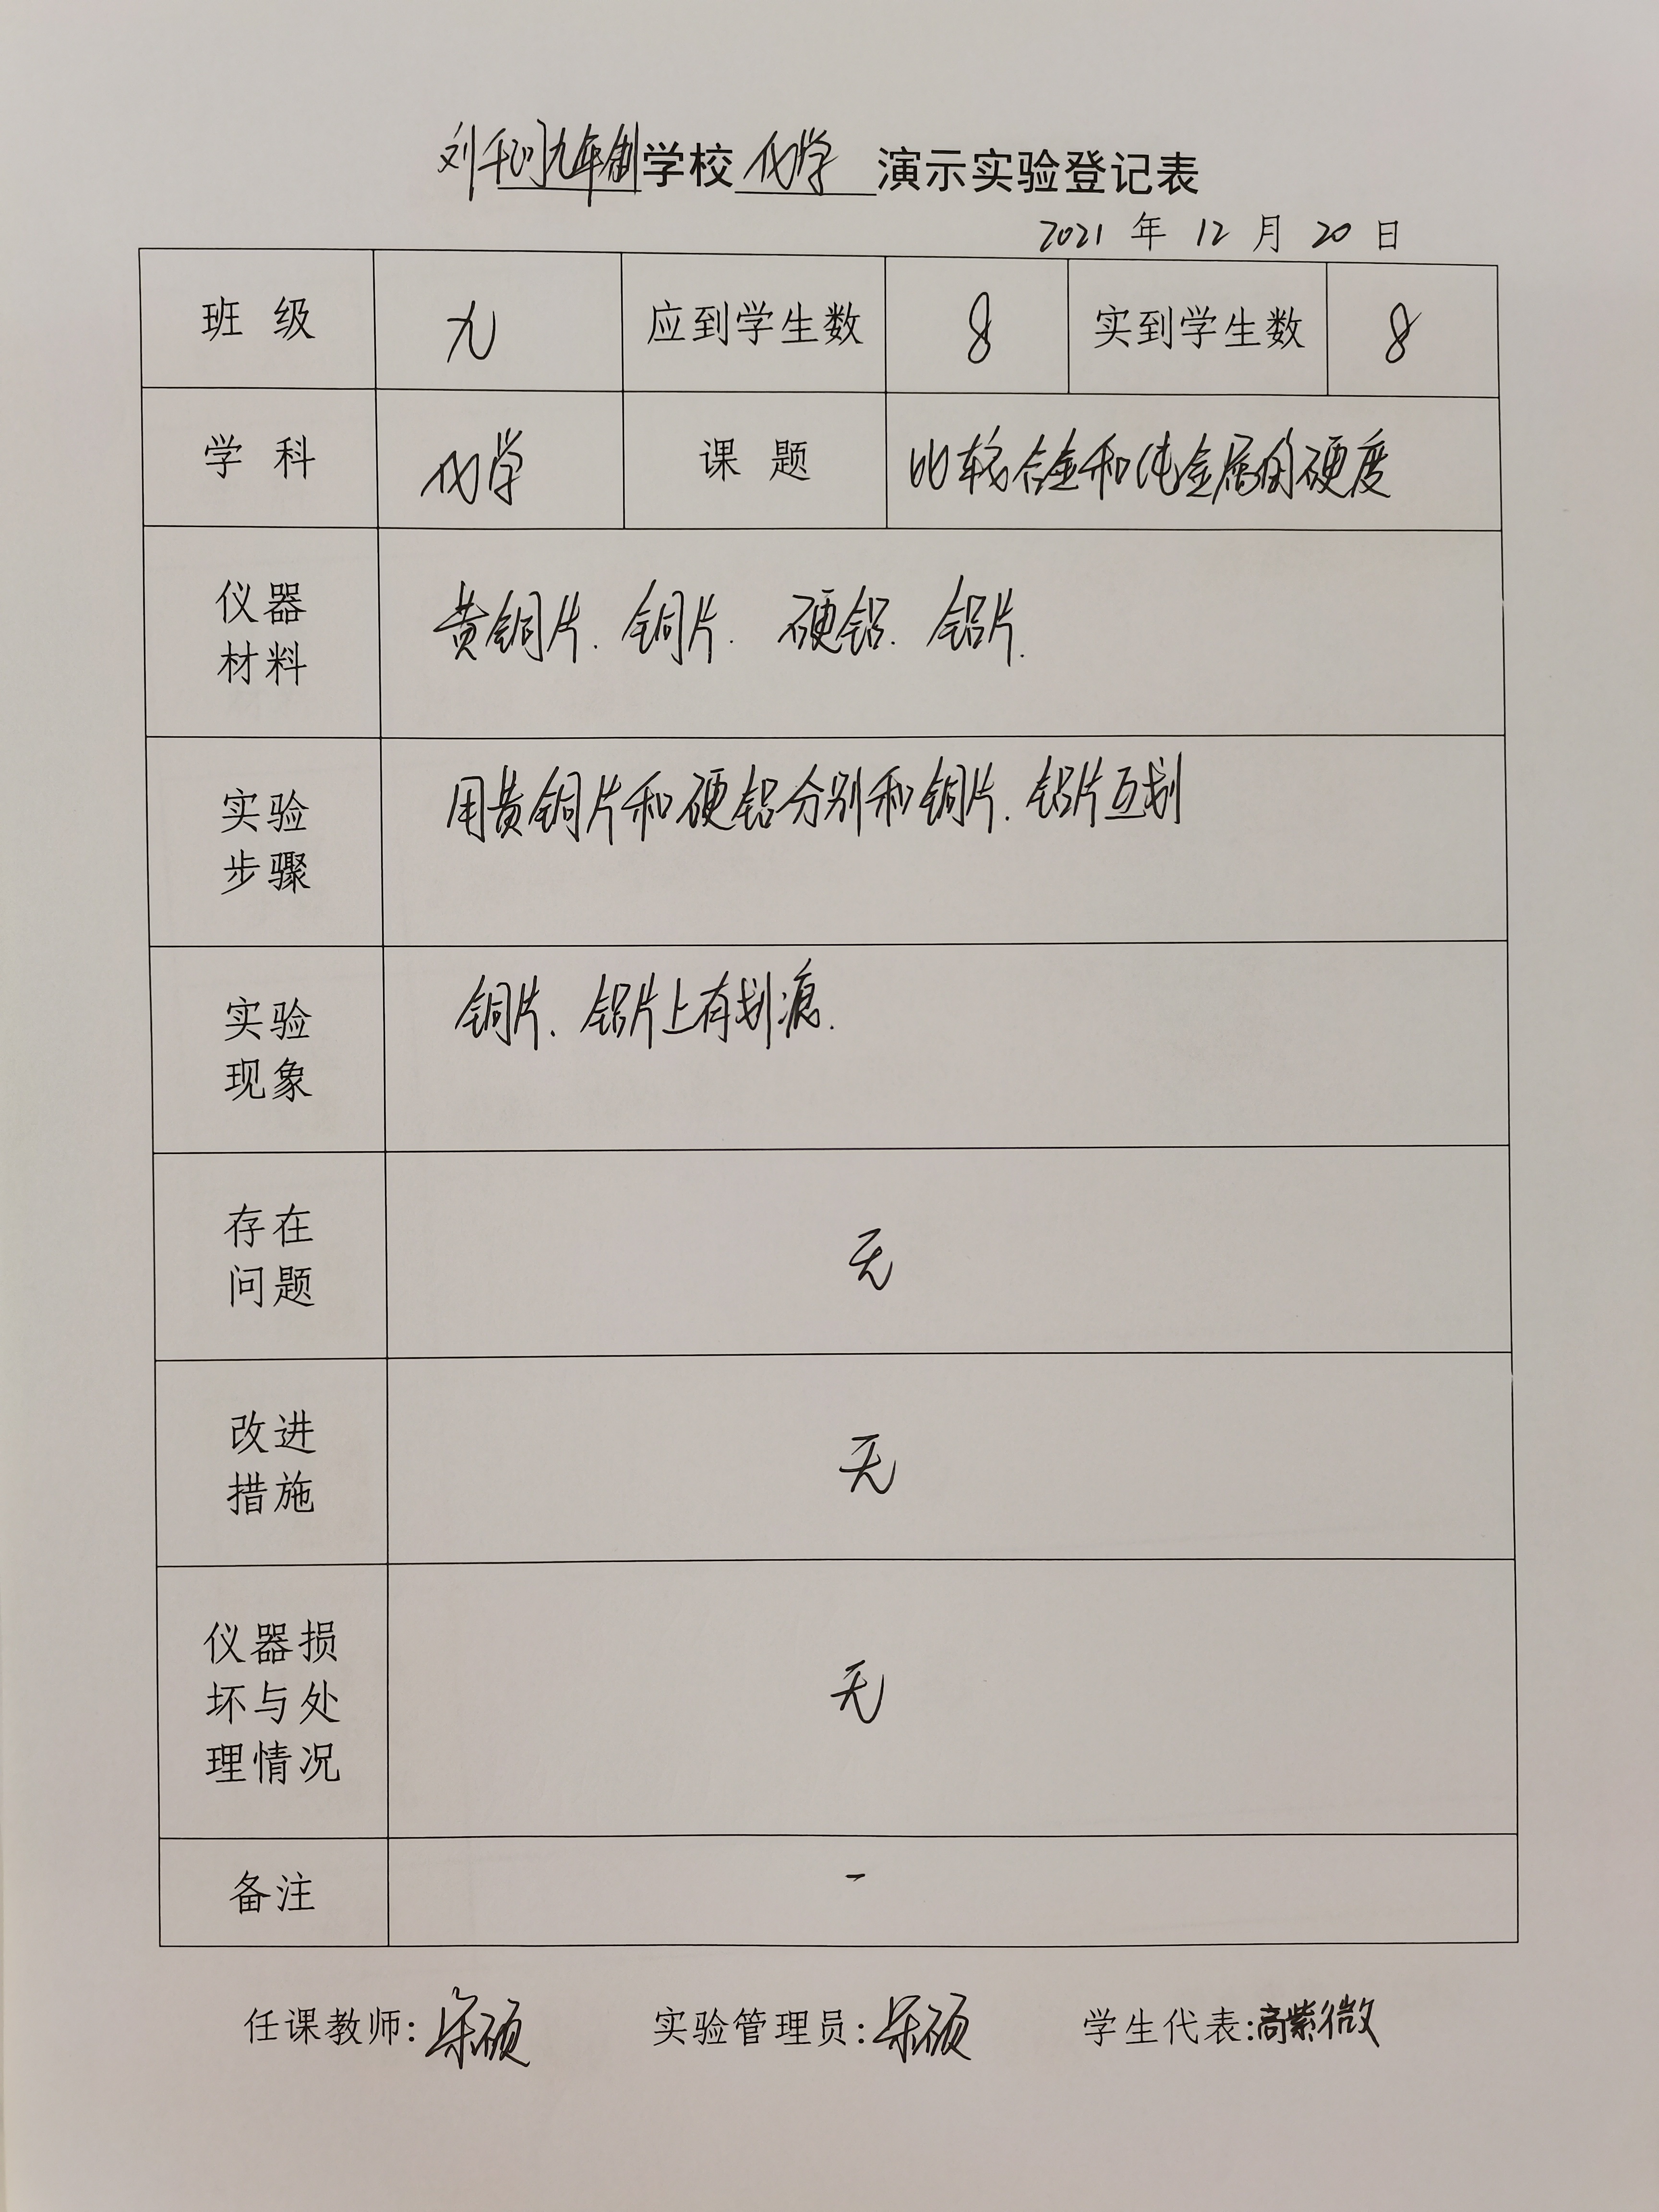 刘千门九年制学校 化学 演示实验登记表
2021 年 12 月 20 日
班 级 九 应到学生数 8 实到学生数 8
学 科 化学 课 题 比较合金和纯金属的硬度
仪器
材料
黄铜片、铜片、硬铝、铝片.
实验
步骤
用黄铜片和硬铝分别和铜片、铝片互划
实验
现象
铜片、铝片上有划痕.
存在
问题
无
改进
措施
无
仪器损
坏与处
理情况
无
备注 -
任课教师: 硕 实验管理员: 硕 学生代表: 高紫微